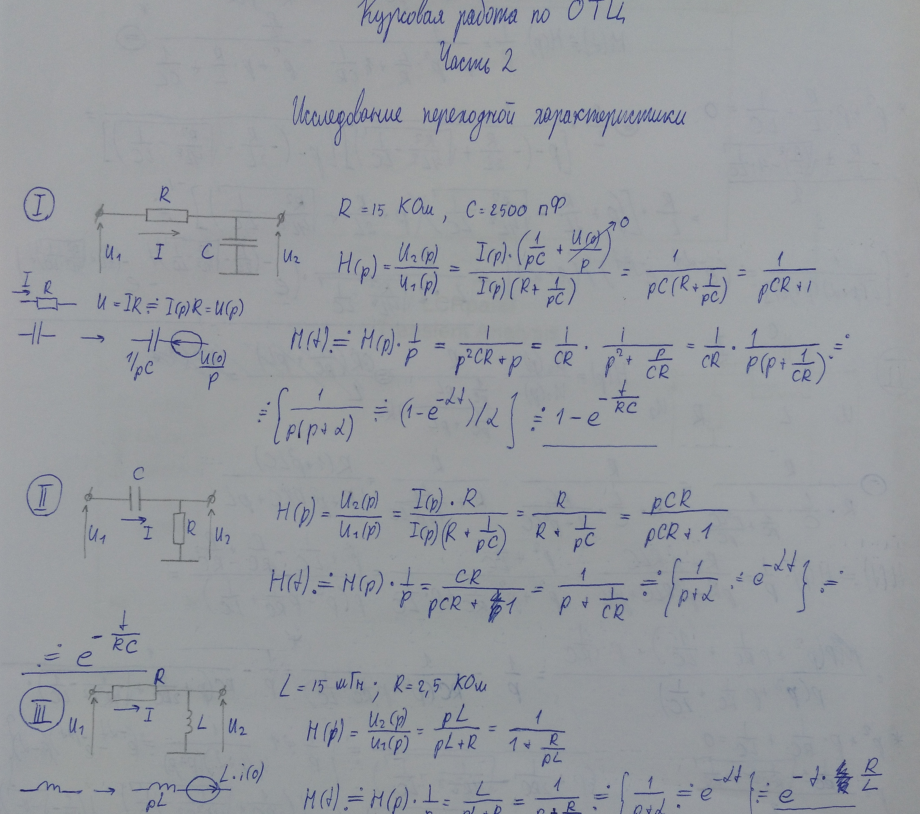 Курсовая работа по ОТЦ
Часть 2
Исследование переходной характеристики
I
R
U₁ I C U₂
R = 15 КОм, C = 2500 пФ
H(p) = U₂(p)/U₁(p) = I(p)·(1/pC + U(0)/p)→0 / I(p)(R + 1/pC) = 1/pC(R + 1/pC) = 1/pCR+1
I R U = IR ≓ I(p)R = U(p)
→ 1/pC U(0)/p
H(t) ≓ H(p)·1/p = 1/p²CR + p = 1/CR · 1/p² + p/CR = 1/CR · 1/p(p + 1/CR) ≓
≓ {1/p(p+α) ≓ (1-e^-αt)/α} ≓ 1 - e^-t/RC
II
C
U₁ I R U₂
H(p) = U₂(p)/U₁(p) = I(p)·R/I(p)(R + 1/pC) = R/R + 1/pC = pCR/pCR + 1
H(t) ≓ H(p)·1/p = CR/pCR + 1 = 1/p + 1/CR ≓ {1/p+α ≓ e^-αt} ≓
≓ e^-t/RC
III
R
U₁ I L U₂
L = 15 мГн; R = 2,5 КОм
H(p) = U₂(p)/U₁(p) = pL/pL+R = 1/1 + R/pL
→ pL L·i(0)
H(t) ≓ H(p)·1/p = L/pL+R = 1/p+R/L ≓ {1/p+α ≓ e^-αt} ≓ e^-t·R/L